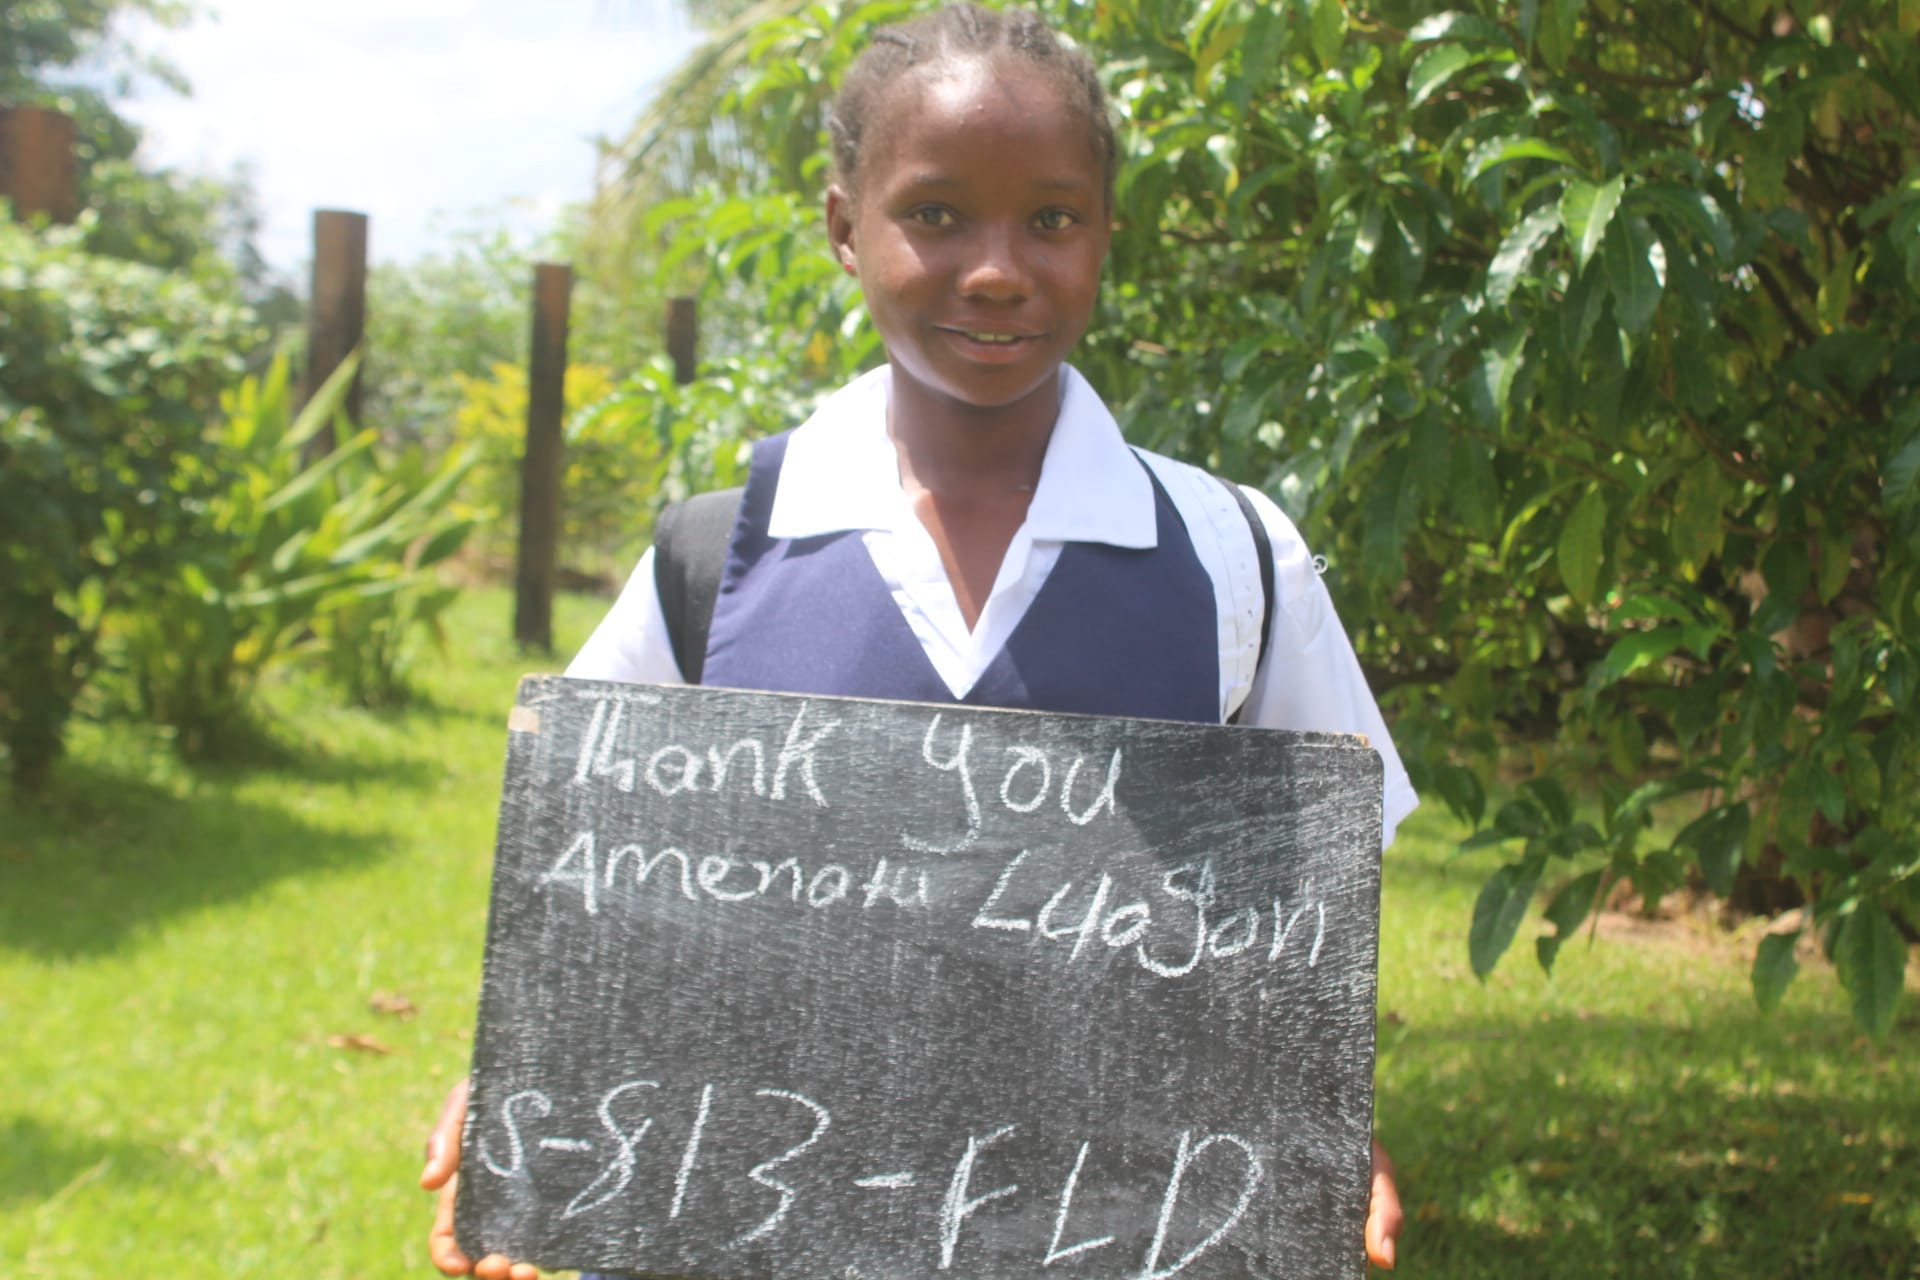 Thank you
Amenata Lyagoni
S-813-FLD